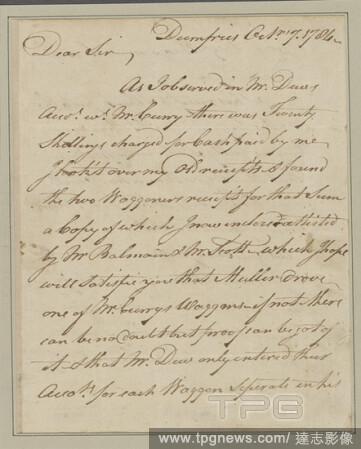 Dumfries Octr. 7. 1784
Dear Sir,
As I observed in Mr. Dews
Accot. wt. Mr. Curry there was Twenty
Shillings charged for Cash paid by me
I look't over my Old receipts & found
the two Waggoners receipt for that Sum
a Copy of which I now inclose attested
by Mr Balmain & Mr. Scott which I hope
will Satisfie you that Muller drove
one of Mr. Currys Waggons if not there
can be no doubt but proof can be got of
it & that Mr. Dew only entered their
Accots. for each Waggon Seperate in his
TPG
www.tpgnews.com/達志影像